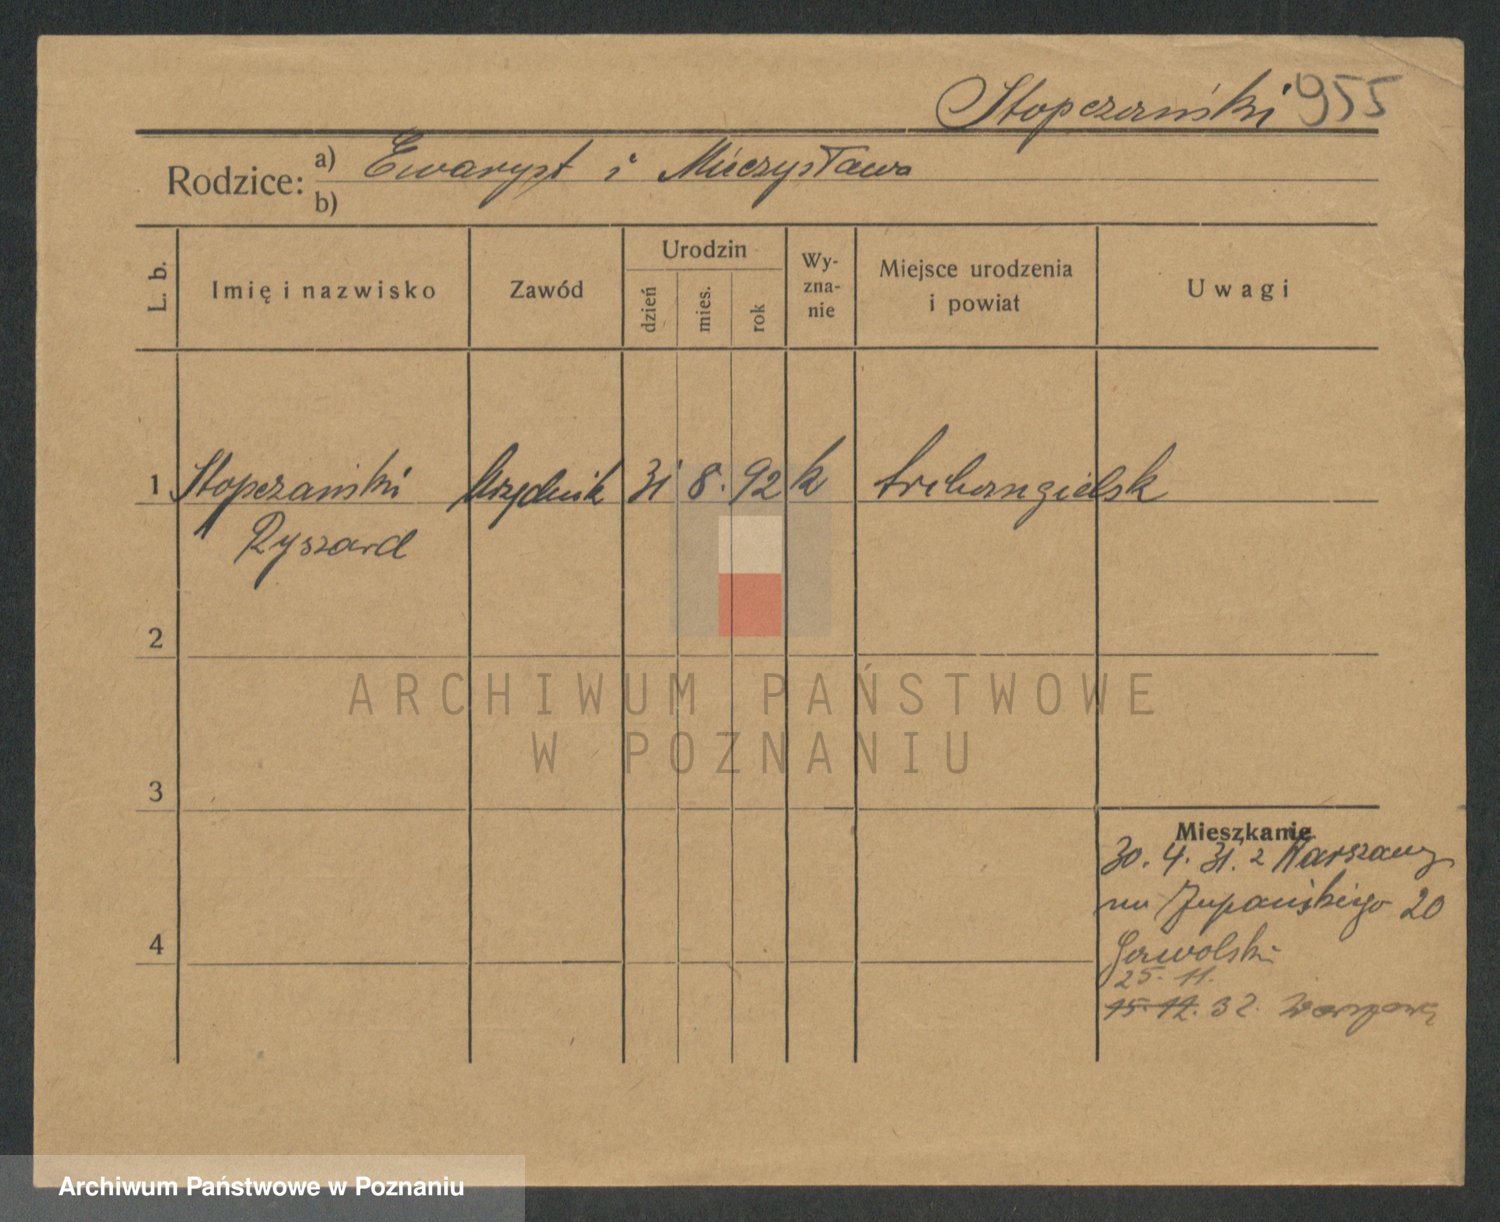 Stopczański 955
Rodzice: a) Ewaryst i Mieczysława
b)
L. b.
Imię i nazwisko
Zawód
Urodzin
dzień
mies.
rok
Wy-
zna-
nie
Miejsce urodzenia
i powiat
Uwagi
1 Stopczański Urzędnik 31 8. 92 k Archangielsk
Ryszard
2
3
4
Mieszkanie
30. 4. 31. z Warszawy
na Żupańskiego 20
25. 11.
15. 12. 32. Warszawa
ARCHIWUM PAŃSTWOWE
W POZNANIU
Archiwum Państwowe w Poznaniu